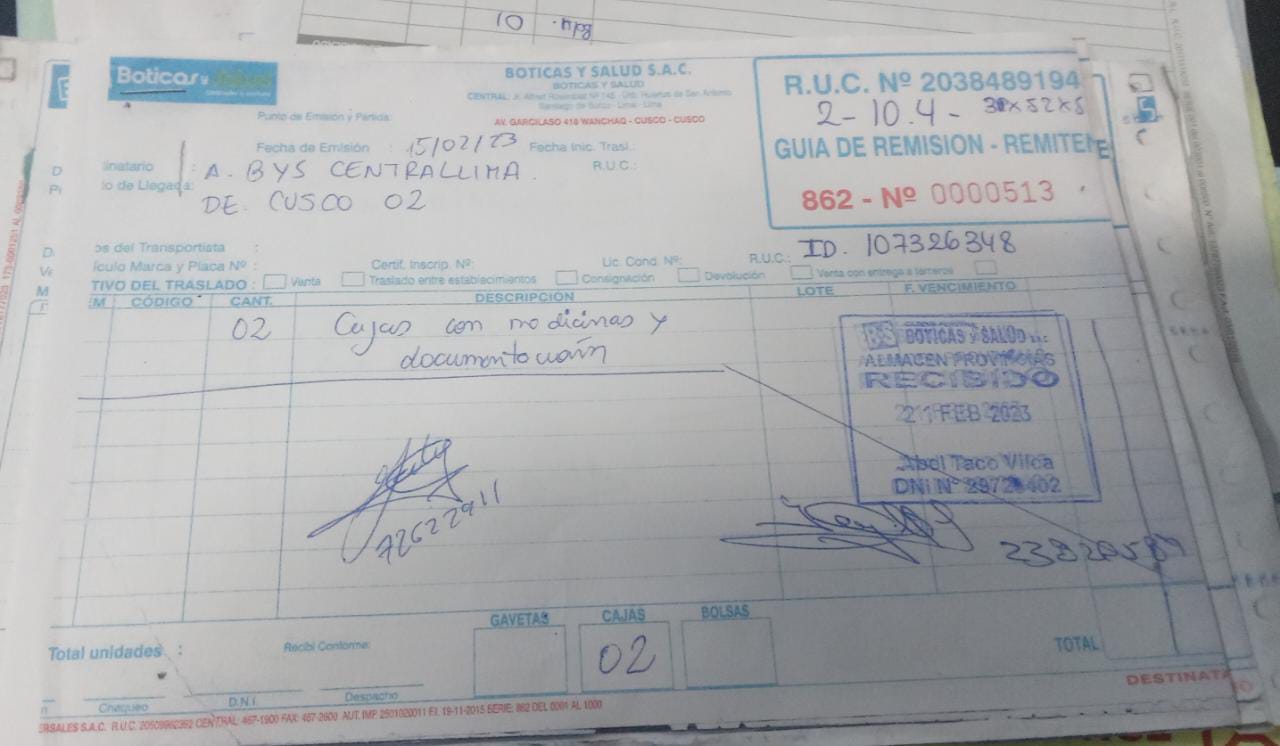 10 Bda.
Boticas y Salud
BOTICAS Y SALUD S.A.C.
BOTICAS Y SALUD
CENTRAL: Jr. Alfred Rosenblat Nº 145 - Urb. Huertos de San Antonio
Santiago de Surco - Lima - Lima
Punto de Emisión y Partida:
AV. GARCILASO 418 WANCHAQ - CUSCO - CUSCO
R.U.C. Nº 2038489194
2-10.4-
GUIA DE REMISION - REMITENTE
862 - Nº 0000513
Fecha de Emisión : 15/02/23 Fecha Inic. Trasl.:
inatario : A. BYS CENTRAL LIMA R.U.C.:
io de Llegada:
DE. CUSCO 02
os del Transportista :
ID. 107326348
ículo Marca y Placa Nº : Certif. Inscrip. Nº: Lic. Cond. Nº: R.U.C.:
TIVO DEL TRASLADO : Venta Traslado entre establecimientos Consignación Devolución Venta con entrega a terceros
M CÓDIGO CANT. DESCRIPCIÓN LOTE F. VENCIMIENTO
02 Cajas con medicinas y
documentación
BS BOTICAS Y SALUD S.A.C.
ALMACEN PROVINCIAS
RECIBIDO
21 FEB 2023
Abel Taco Vilca
DNI Nº
72622911
GAVETAS CAJAS BOLSAS
Total unidades : Recibí Conforme: 02 TOTAL
Chequeo D.N.I. Despacho
DESTINATA
ERSALES S.A.C. R.U.C. 20509962362 CENTRAL: 467-1900 FAX: 467-2600 AUT. IMP. 2501020011 F.I. 19-11-2015 SERIE: 862 DEL 0001 AL 1000